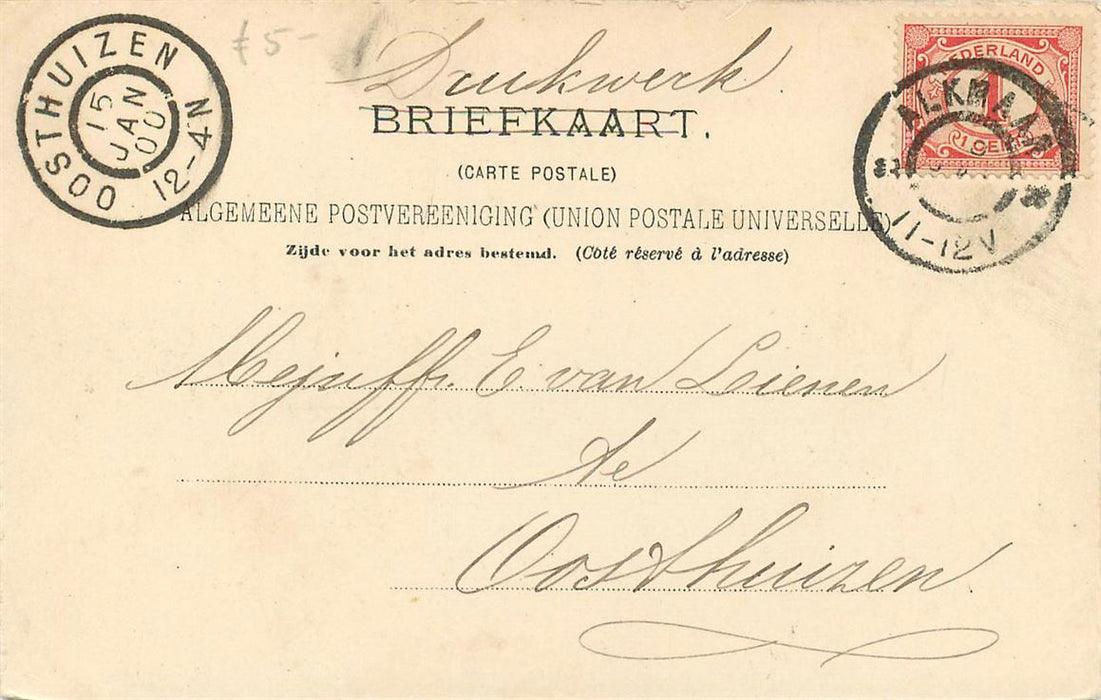 £5-
Drukwerk
BRIEFKAART.
(CARTE POSTALE)
ALGEMEENE POSTVEREENIGING (UNION POSTALE UNIVERSELLE)
Zijde voor het adres bestemd. (Côté réservé à l'adresse)
OOSTHUIZEN
15
JAN
00
12-4N
NEDERLAND
1
1 CENT
ALKMAAR
11-12V
Mejuffr. E. van Leienen
te
Oosthuizen.